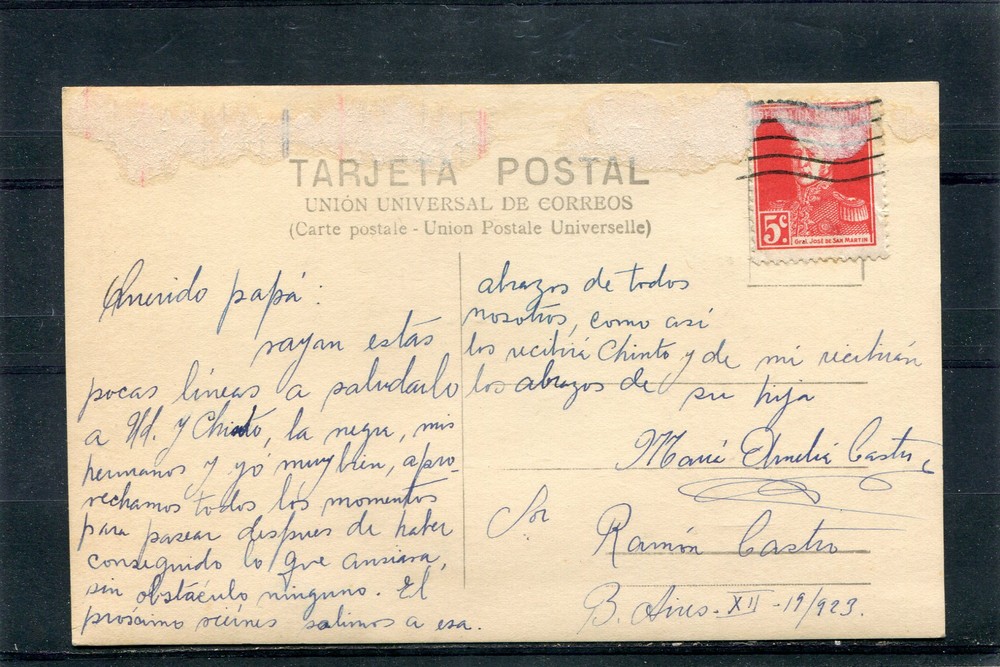 TARJETA POSTAL
UNIÓN UNIVERSAL DE CORREOS
(Carte postale - Union Postale Universelle)
5c.
Gral. José de San Martín
Querido papá:
vayan estas
pocas líneas a saludarlo
a Ud. y Chinto, la negra, mis
hermanos y yó muy bien, apro-
vechamos todos los momentos
para pasear despues de haber
conseguido lo que ansiava,
sin obstáculo ninguno. El
prósimo viérnes salimos a esa.
abrazos de todos
nosotros, como así
los recibirá Chinto y de mi recibirán
los abrazos de su hija
María Amelia Castro
Sor
Ramón Castro
B. Aires - XII - 19/923.